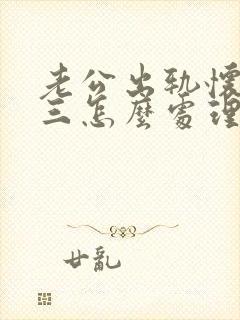 老公出轨懷
三怎麼處理
廿亂